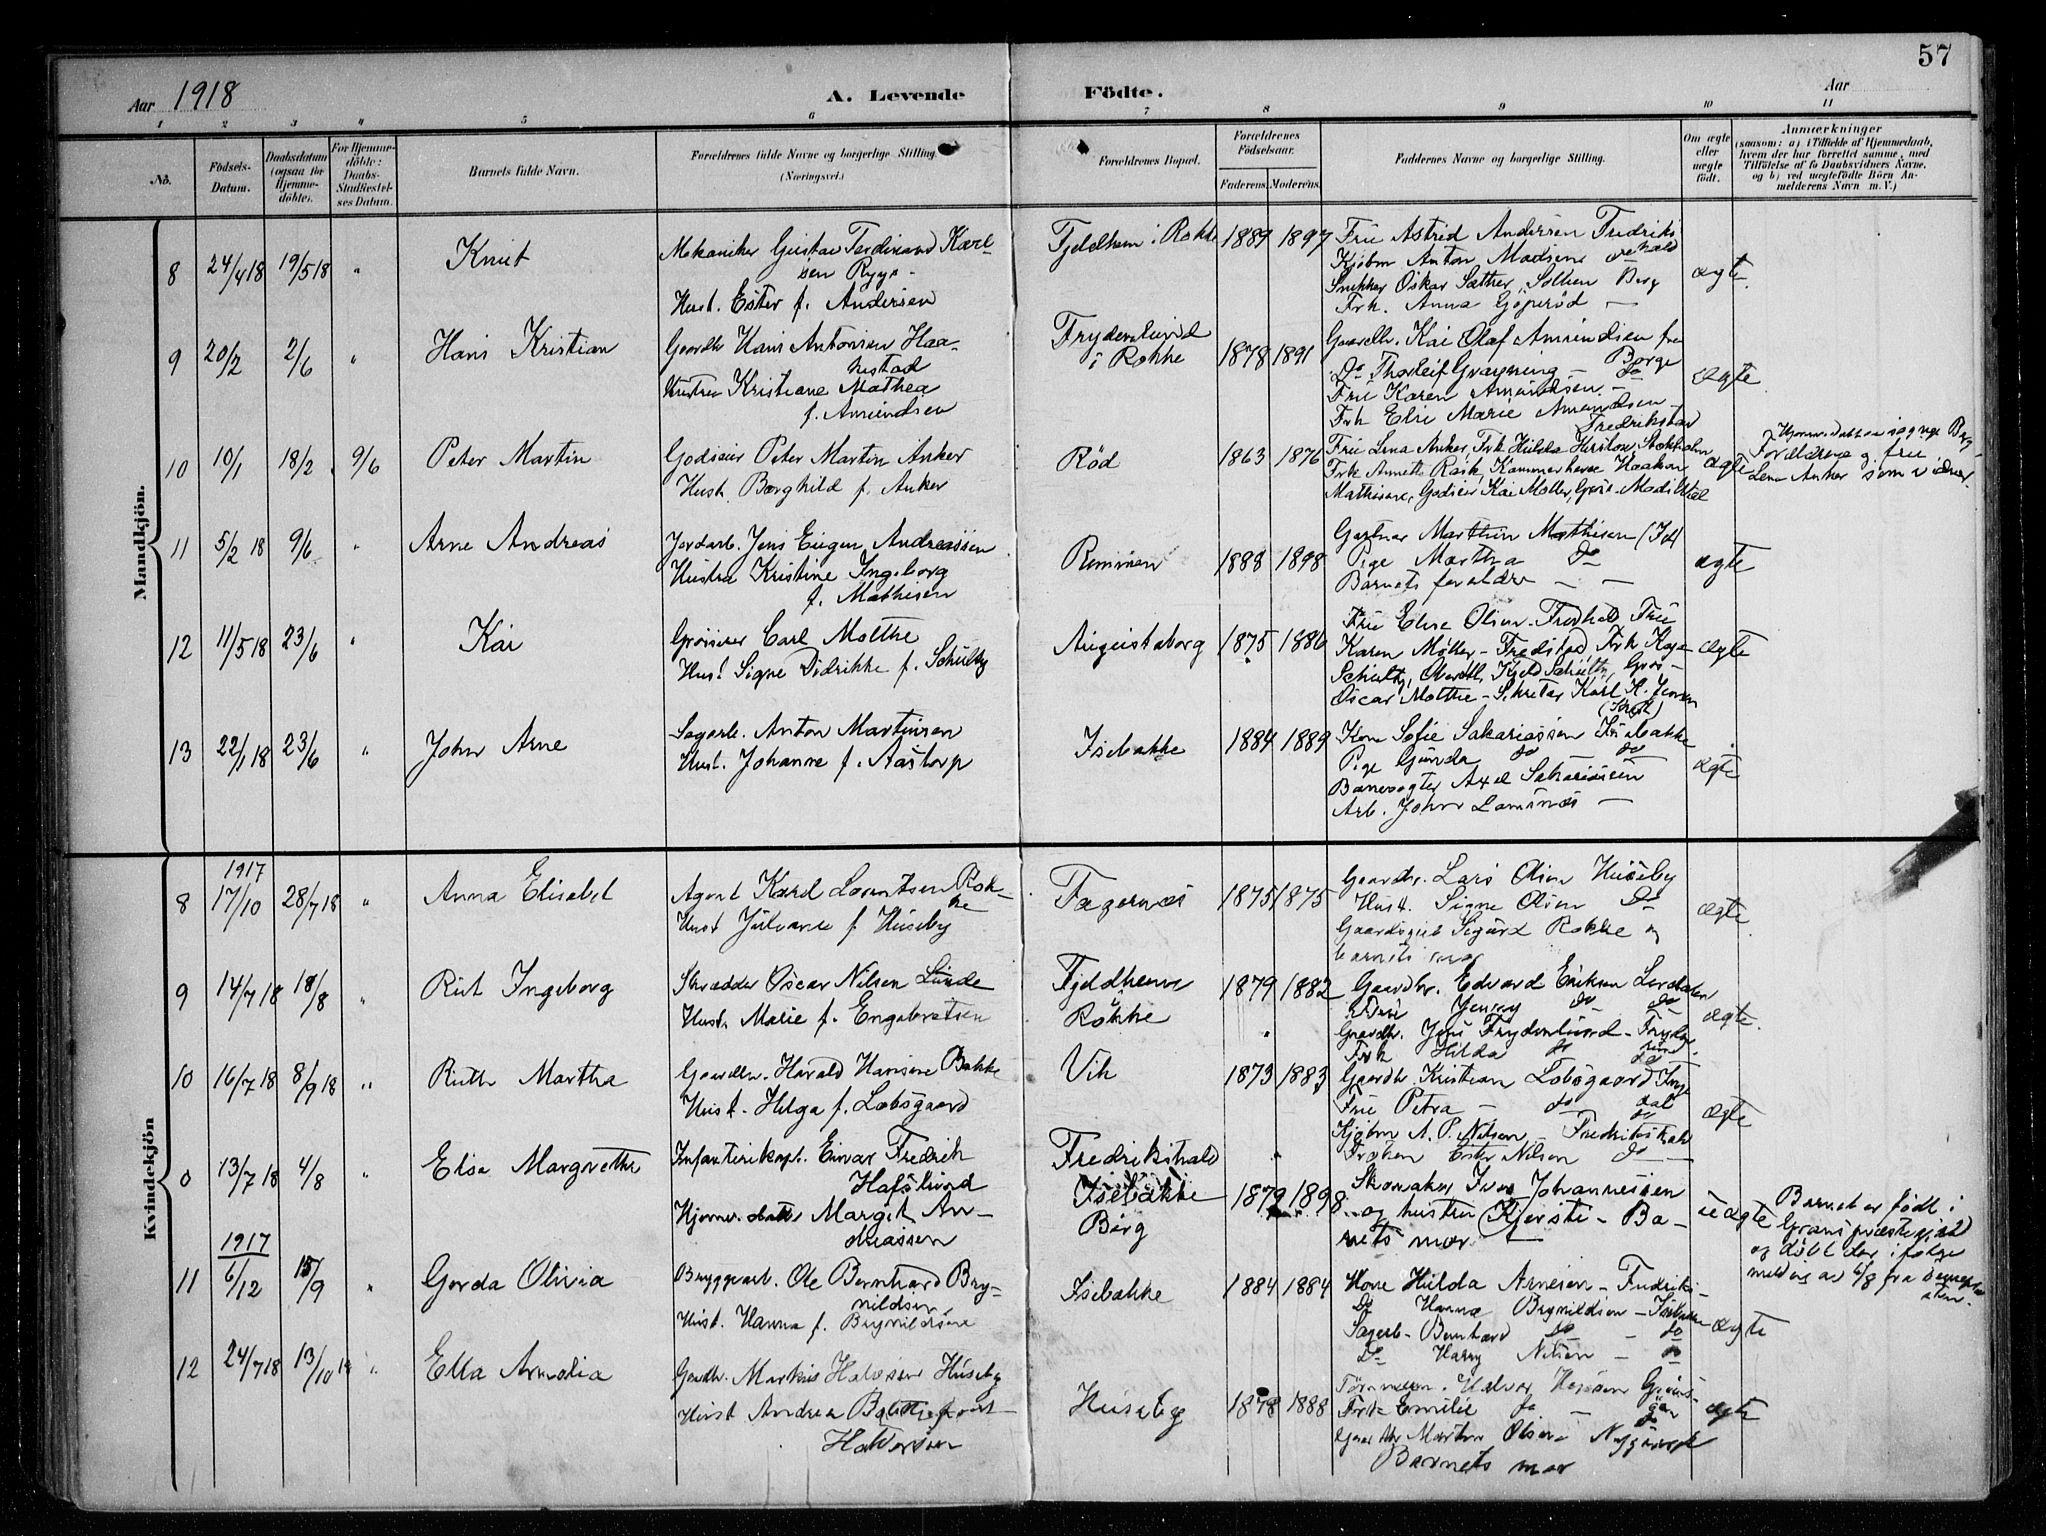 57
Aar 1918
A. Levende Födte.
Aar
1 2 3 4 5 6 7 8 9 10 11
No.
Födsels-Datum.
Daabsdatum (ogsaa for Hjemme-döbte).
For Hjemme-döbte: Daabs-Stadfæstel-ses Datum.
Barnets fulde Navn.
Forældrenes fulde Navne og borgerlige Stilling. (Næringsvei.)
Forældrenes Bopæl.
Forældrenes Födselsaar.
Faderens. Moderens.
Faddernes Navne og borgerlige Stilling.
Om ægte eller uægte födt.
Anmærkninger
(saasom: a) i Tilfælde af Hjemmedaab, hvem der har forrettet samme, med Tilföielse af to Daabsvidners Navne. og b) ved uægtefödte Börn An-melderens Navn m. V.)
Mandkjön.
8 24/4 18 19/5 18 " Knut
Mekaniker Gustav Ferdinand Karl-
sen Rygs-
Hust. Ester f. Andersen
Fjeldhem i Rokke 1889 1897
Fru Astrid Andersen Fredriks
hald
Kjøbm Anton Madsen
Snikker Oskar Sæther, Berg
Frk. Anna
ægte.
9 20/2 2/6 " Hans Kristian
Gaardbr Hans Antonsen Haa-
kestad
Hustru Kristiane Mathea
f. Amundsen
Frydenlund
i Rokke 1878 1891
Gaardbr. Kai Olaf Amundsen fra
Borge
Do Thorleif Grayning - do
Fru Karen Amundsen -
Frk Elsi Marie Amundsen
Fredrikstad
ægte
10 10/1 18/2 9/6 Peter Martin
Godseier Peter Martin Anker
Hust. Borghild f. Anker
Rød 1863 1876
Fru Lena Anker, Frk Hilda Stokholm
Frk Annette Rask, Kammerherre Haakon
Mathiesen, Godseier Kai Møller,
ægte
Hjemmedøbt
Forældrene og fru
Lena Anker som vidner.
11 5/2 18 9/6 " Arne Andreas
Jordarb. Jens Eugen Andreassen
Hustru Kristine Ingeborg
f. Mathisen
Remmen 1888 1898
Gartner Marthin Mathisen (Id)
Pige Martha do
Barnets forældre - -
ægte
12 11/5 18 23/6 " Kai
Grosserer Carl Molthe
Hust Signe Didrikke f. Schultz
Augustaborg 1875 1886
Fru Elise Olsen Fredhald, Fru
Karen Møller - Fredstad, Frk Kaja
Schultz, Kjeld Schultz, Gros-
Oscar Molthe - Sekretær Karl K. Jensen
ægte
13 22/1 18 23/6 " John Arne
Sagarb. Anton Martinsen
Hust. Johanne f. Aastorp
Isebakke 1884 1889
Kone Sofie Sakariassen Isebakke
Pige Gunda do - do
Banevogter Axel Sakariassen
Arb. John Lamsnæs -
ægte
Kvindekjön
8 1917 17/10 28/7 18 " Anna Elisabet
Agent Karl Lorentsen Rok-
ke
Hust Julvane f Huseby
Fagernæs 1875 1875
Gaardbr. Lars Olsen Huseby
Hust. Signe Olsen do
Gaardsgut Sigurd Rokke og
barnets mor
ægte
9 14/7 18 18/8 " Rut Ingeborg
Skrædder Oscar Nilsen Lunde
Hust. Marie f. Engebretsen
Fjeldheim
Rokke 1879 1882
Gaardbr. Edvard Eriksen
Fru Jenny do do
Gaardbr. Jens Frydenlund - Fryden
lund
Frk Hilda do do
ægte.
10 16/7 18 8/9 18 " Ruth Martha
Gaardbr. Harald Hansen Bakke
Hust. Helga f. Løbsgaard
Vik 1873 1883
Gaardbr. Kristian Løbsgaard
Fru Petra - do do
Kjøbm A. P. Nilsen - Fredrikshald
Frøken Ester Nilsen do
ægte
0 13/7 18 4/8 " Elsa Margrethe
Infanterikapt. Einar Fredrik
Hafslund
Hjemmev. datter Margit An-
dreassen
Fredrikshald
Isebakke
Berg 1879 1898
Skomaker Iver Johannessen
og hustru Kjersti - Ba-
rnets mor
uægte
Barnet er født i
Grans præstegjæld
og døbt der ifølge
melding av 6/8 fra sognepræ
sten.
11 1917 6/12 15/9 " Gerda Olivia
Bryggearb. Ole Bernhard Bry-
nildsen
Hust. Hanna f. Brynildsen
Isebakke 1884 1884
Kone Hilda Arnesen - Fredriks-
Do Hanna Brynildsen - Isebakke
Sagarb- Bernhard do - do
Do Harry Nilsen - do
ægte
12 24/7 18 13/10 18 " Ella Amalia
Gaardbr. Markus Halvorsen Huseby
Hust Andrea
Halvorsen
Huseby 1878 1888
Tømmerm. Halvor Hansen
Frk Emilie do - do
Gaardbr Martin Olsen Nygaard
Barnets mor
ægte